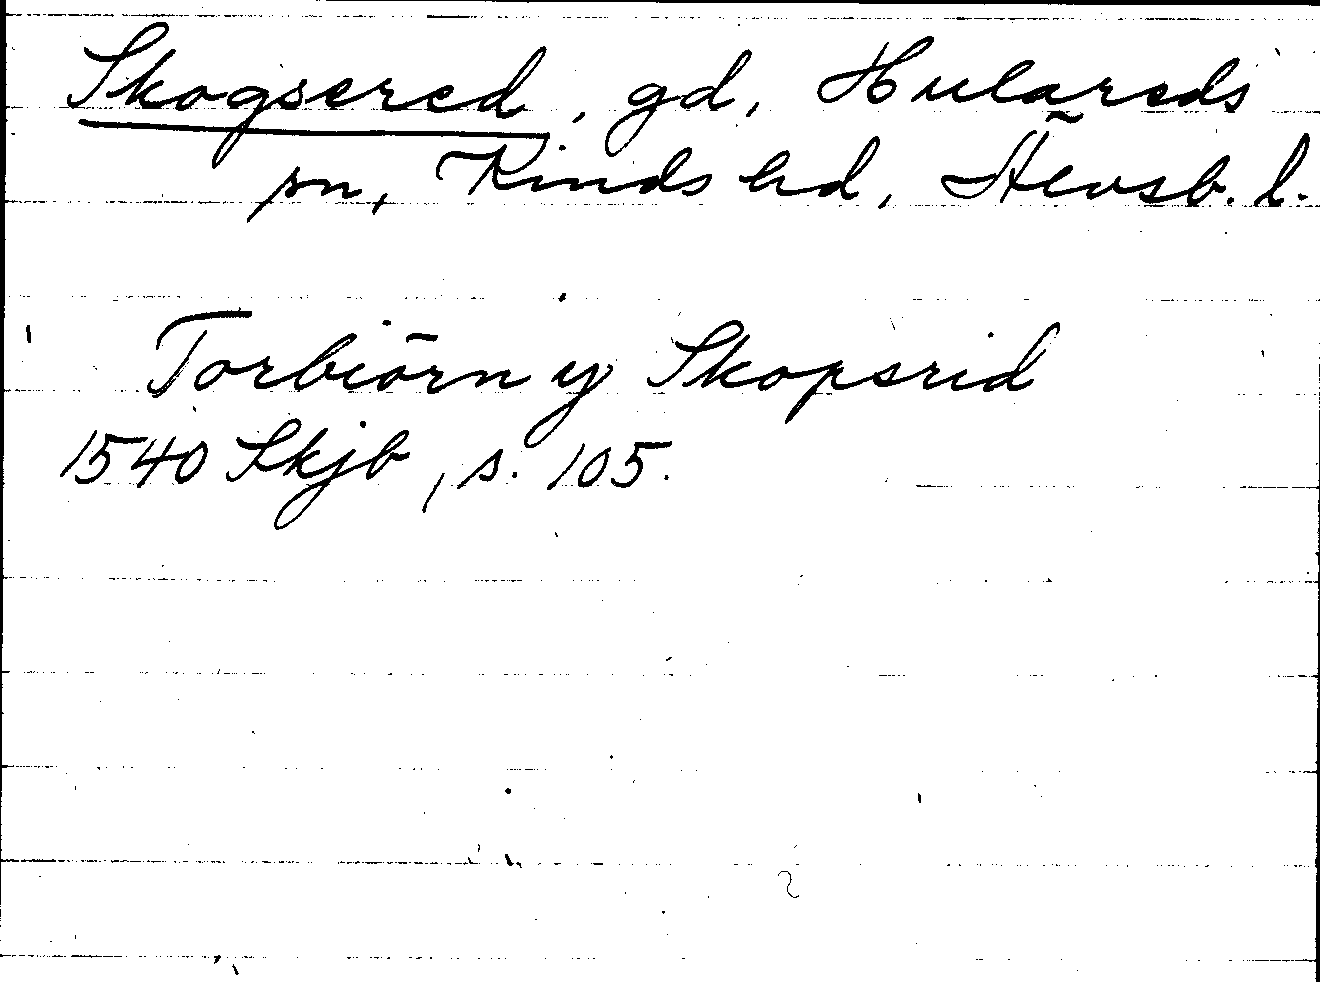 Skogsered, gd, Hulareds
sn, Kinds hd, Älvsb. l.
Torbiörn y Skopsrid
1540 Skjb, s. 105.